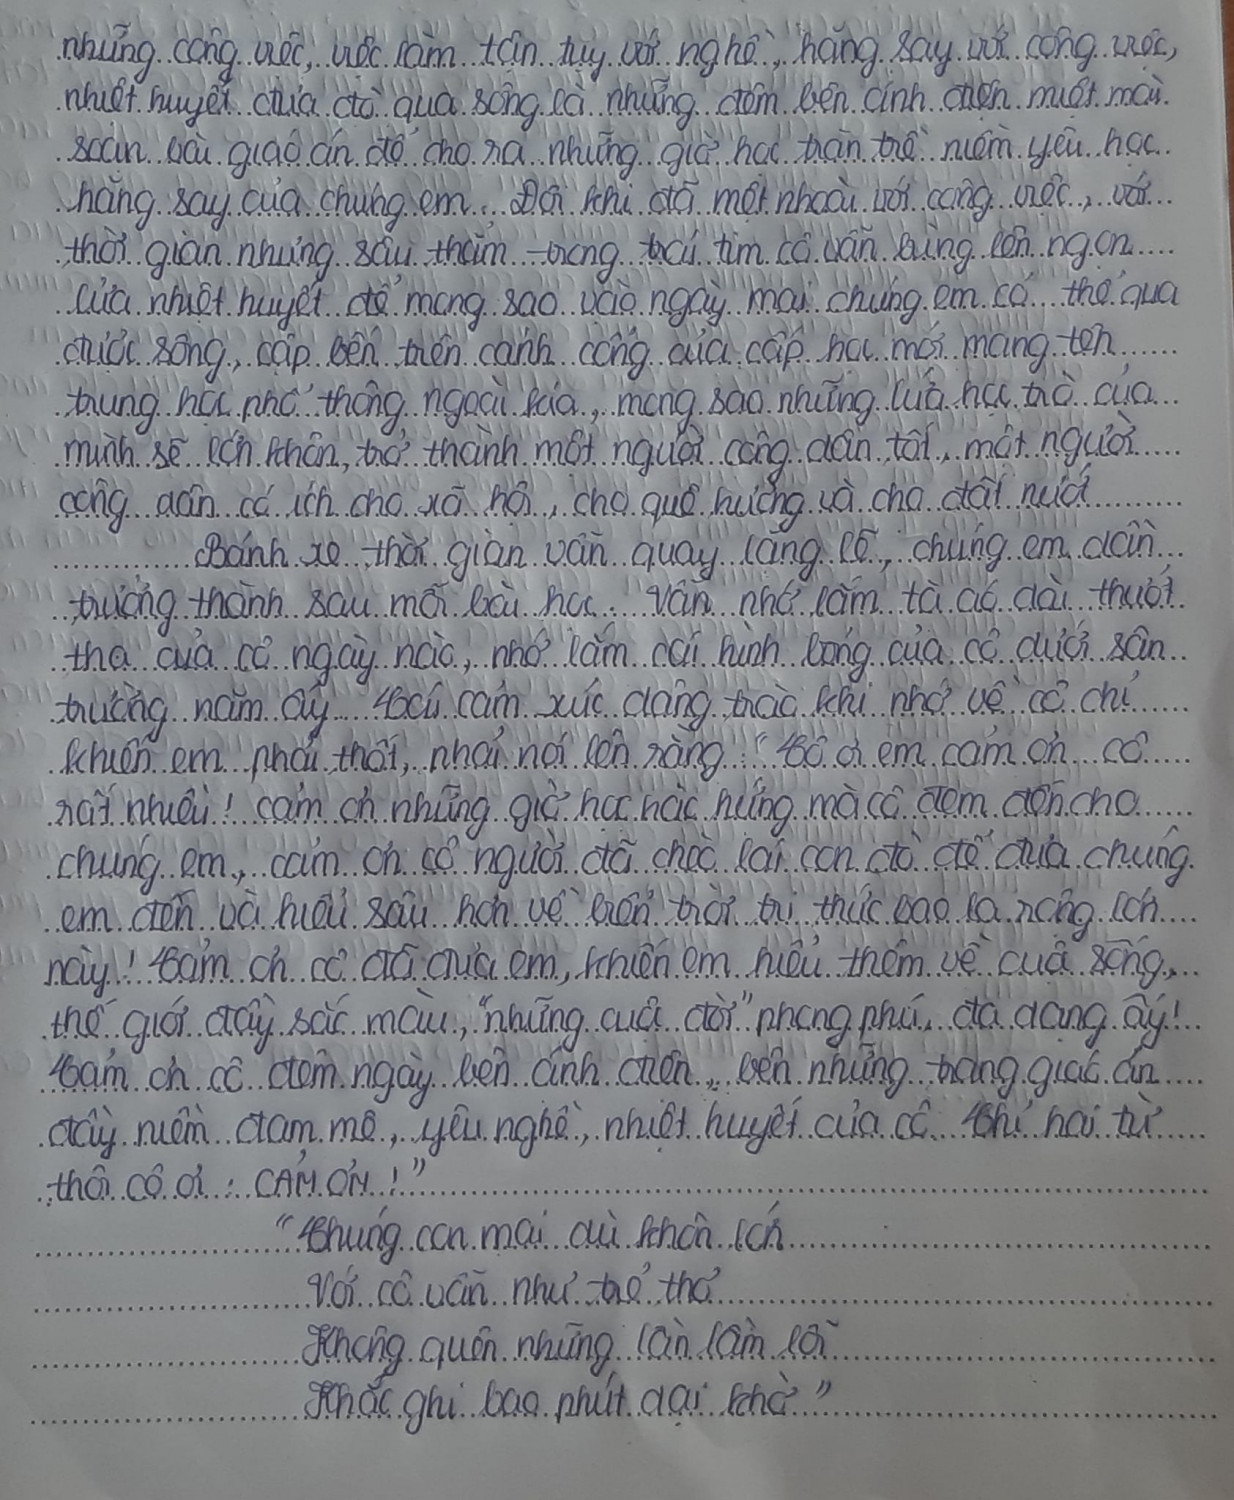 những công việc, việc làm tận tụy với nghề, hăng say với công việc,
nhiệt huyết đưa đò qua sông là những đêm bên ánh điện miệt mài
soạn bài giáo án để cho ra những giờ học tràn trề niềm yêu học
hăng say của chúng em. Đôi khi đã mệt nhoài với công việc, với
thời gian nhưng sâu thẳm trong trái tim cô vẫn bùng lên ngọn
lửa nhiệt huyết để mong sao vào ngày mai chúng em có thể qua
được sông, cập bến trên cánh cổng của cấp học mới mang tên
trung học phổ thông ngoài kia, mong sao những lứa học trò của
mình sẽ lớn khôn, trở thành một người công dân tốt, một người
công dân có ích cho xã hội, cho quê hương và cho đất nước
Bánh xe thời gian vẫn quay lặng lẽ, chúng em dần
trưởng thành sau mỗi bài học. Vẫn nhớ lắm tà áo dài thướt
tha của cô ngày nào, nhớ lắm cái hình bóng của cô dưới sân
trường năm ấy. Cái cảm xúc dâng trào khi nhớ về cô chỉ
khiến em phải thốt, phải nói lên rằng: "Cô ơi em cảm ơn cô
rất nhiều! cảm ơn những giờ học hào hứng mà cô đem đến cho
chúng em, cảm ơn cô người đã chèo lái con đò để đưa chúng
em đến và hiểu sâu hơn về biển trời tri thức bao la rộng lớn
này! Cảm ơn cô đã đưa em, khiến em hiểu thêm về cuộc sống,
thế giới đầy sắc màu, "những cuộc đời" phong phú, đa dạng ấy!
Cảm ơn cô đêm ngày bên ánh điện, bên những trang giáo án
đầy niềm đam mê, yêu nghề, nhiệt huyết của cô. Chỉ hai từ
thôi cô ơi: CẢM ƠN!"
"Chúng con mai dù khôn lớn
Với cô vẫn như trẻ thơ
Không quên những lần lầm lỗi
Khắc ghi bao phút dại khờ"